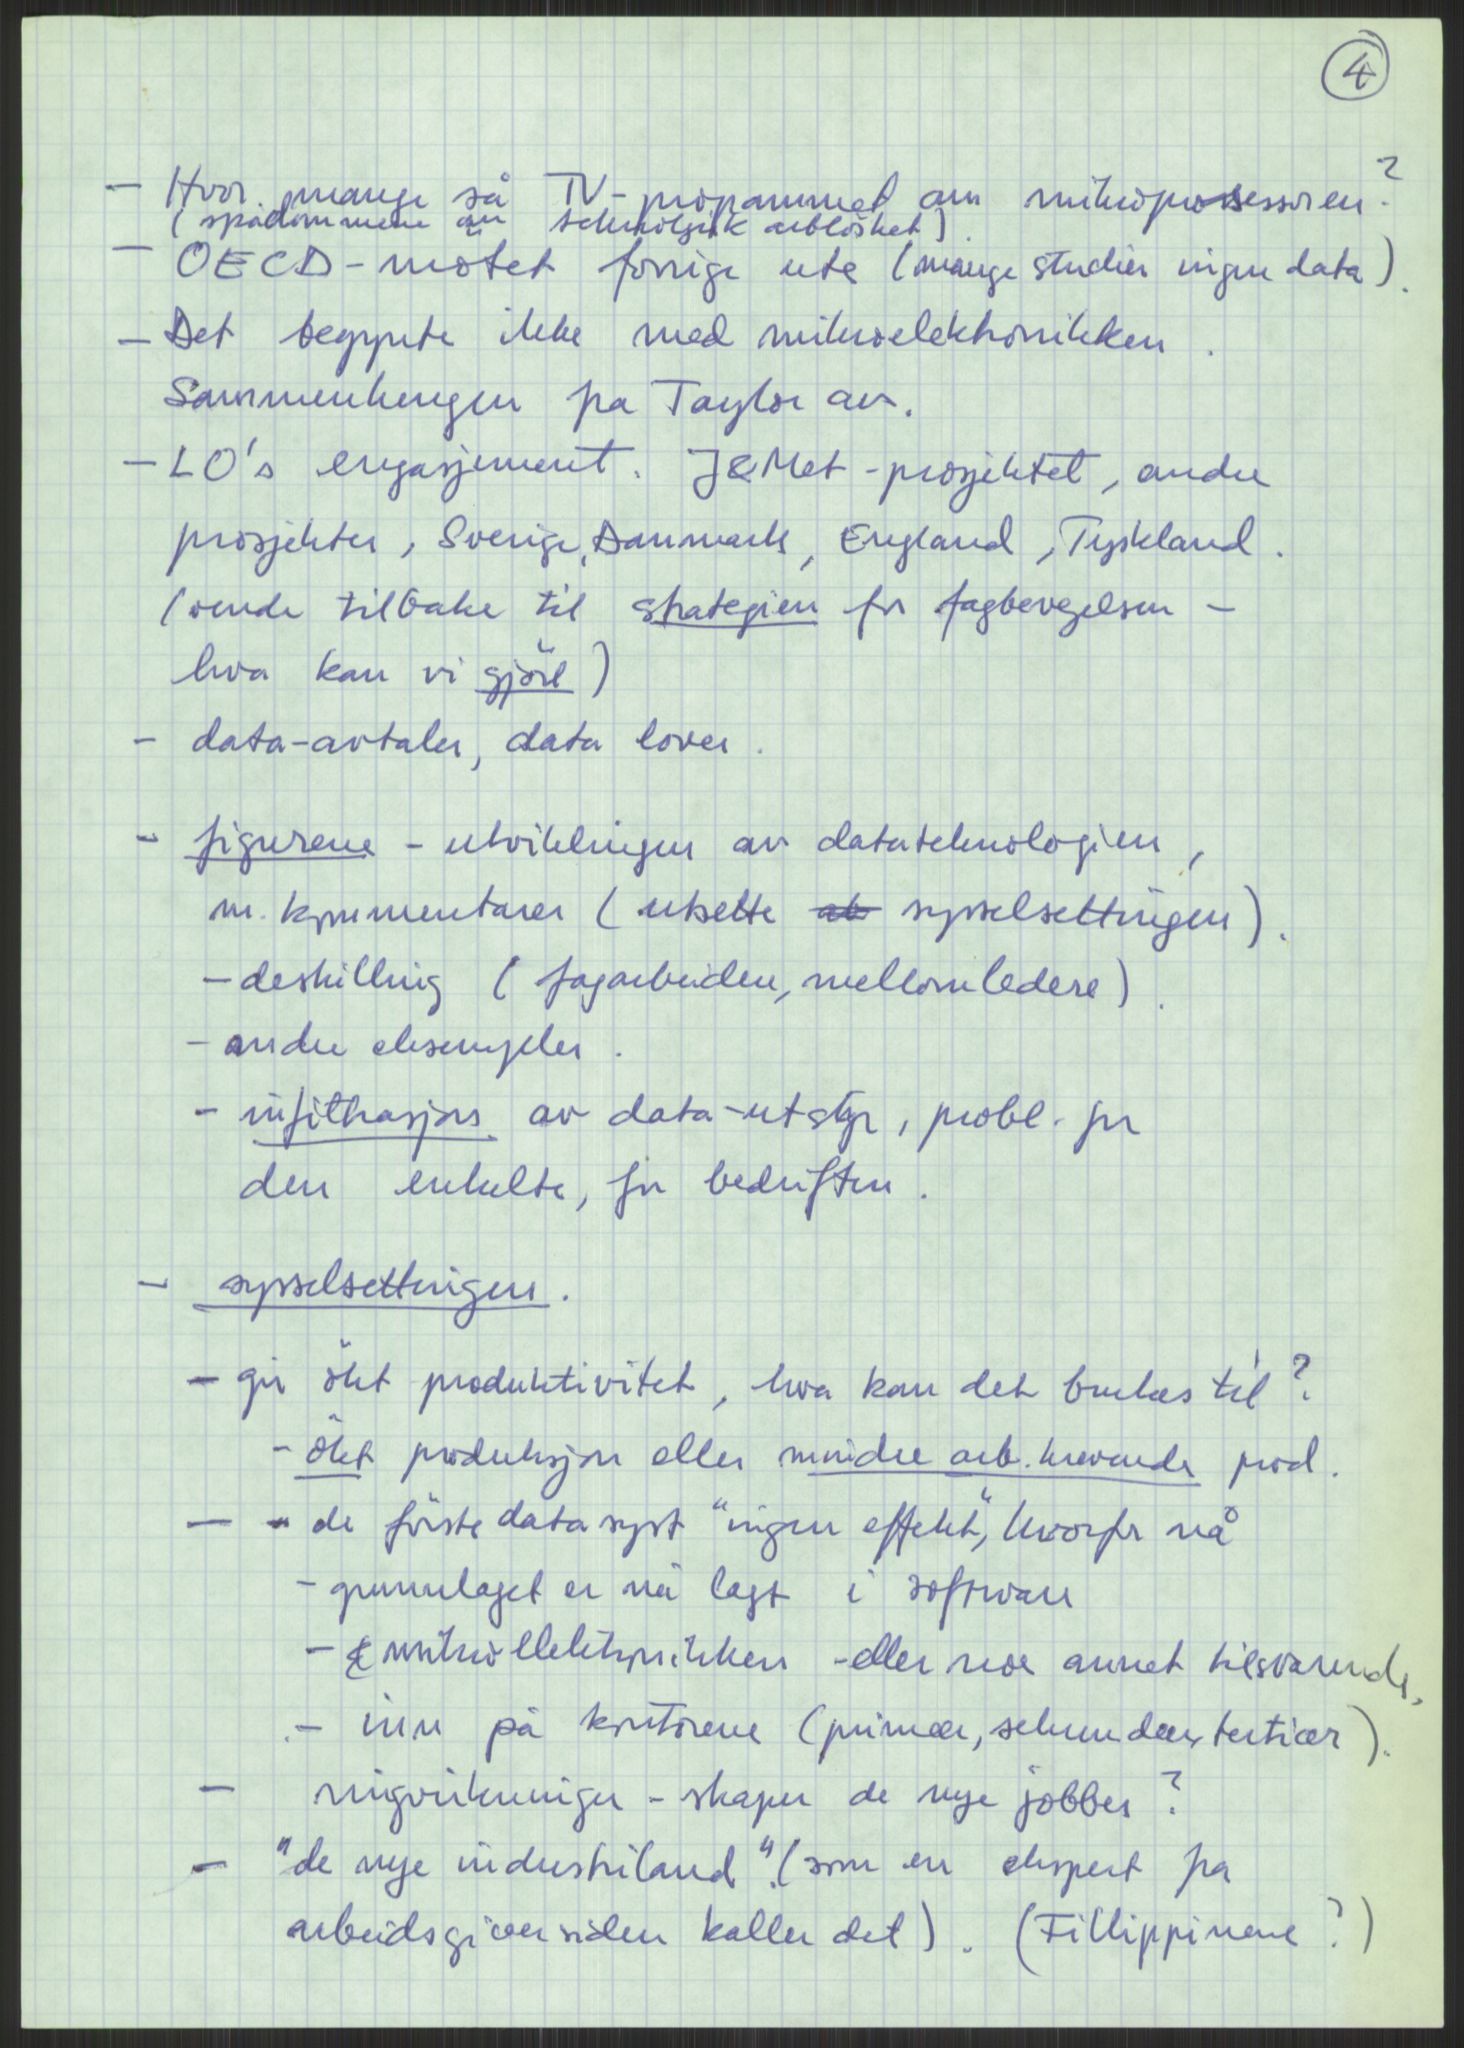 4
- Hvor mange så TV-programmet om mikroprosessoren?
(spådommene om teknologisk arbløshet).
- OECD-møtet forrige uke (mange studier ingen data).
- Det begynte ikke med mikroelektronikken.
Sammenhengen fra Taylor av.
- LO's engasjement. J&Met-prosjektet, andre
prosjekter, Sverige, Danmark, England, Tyskland.
(vende tilbake til strategien for fagbevegelsen -
hva kan vi gjöre)
- data-avtaler, data lover.
- figurene - utviklingen av datateknologien,
m. kommentarer (utsette sysselsettingen).
- deskilling (fagarbeidere, mellomledere).
- andre eksempler.
- infiltrasjon av data-utstyr, probl. for
den enkelte, for bedriften.
- sysselsettingen.
- gir ökt produktivitet, hva kan det brukes til?
- ökt produksjon eller mindre arb. krevende prod.
- - de förste datasyst "ingen effekt", hvorfor nå
- grunnlaget er nå lagt i software
- & mikroelektronikken - eller noe annet tilsvarende.
- inn på kontorene (primær, sekundær, tertiær).
- ringvirkninger - skaper de nye jobber?
- "de nye industriland". (som en ekspert fra
arbeidsgiversiden kaller det). (Fillippinene?)